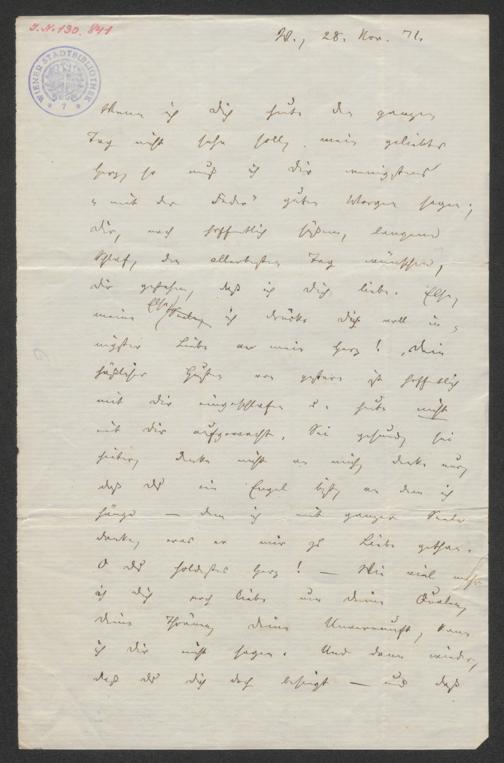 J.N. 130.841
WIENER STADTBIBLIOTHEK
7
W., 28. Nov. 71.
Wenn ich Dich heute den ganzen
Tag nicht sehn soll, mein geliebtes
Herz, so muß ich Dir wenigstens
„mit der Feder“ guten Morgen sagen;
Dir, nach hoffentlich süßem, langem
Schlaf, den allerbesten Tag wünschen,
Dir gestehen, daß ich Dich liebe. Else,
meine ich drücke Dich voll in-
nigster Liebe an mein Herz! Dein
häßlicher Husten von gestern ist hoffentlich
mit Dir eingeschlafen u. heute nicht
mit Dir aufgewacht. Sei gesund, sei
heiter, denke nicht an mich, denke nur,
daß Du ein Engel bist, an dem ich
hänge — dem ich mit ganzer Seele
danke, was er mir zu Liebe gethan.
O du holdestes Herz! — Wie viel mehr
ich Dich noch liebe um Deine Qualen,
Deine Thränen, Deine Unvernunft, kann
ich Dir nicht sagen. Und dann wieder,
daß Du Dich doch besiegt — und daß